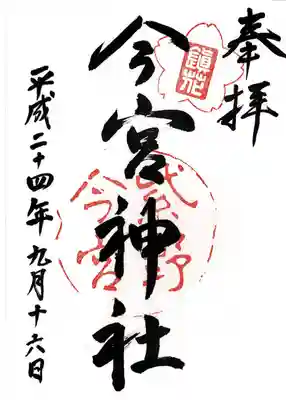 奉拝
鎮花
今宮神社
今宮
平成二十四年九月十六日